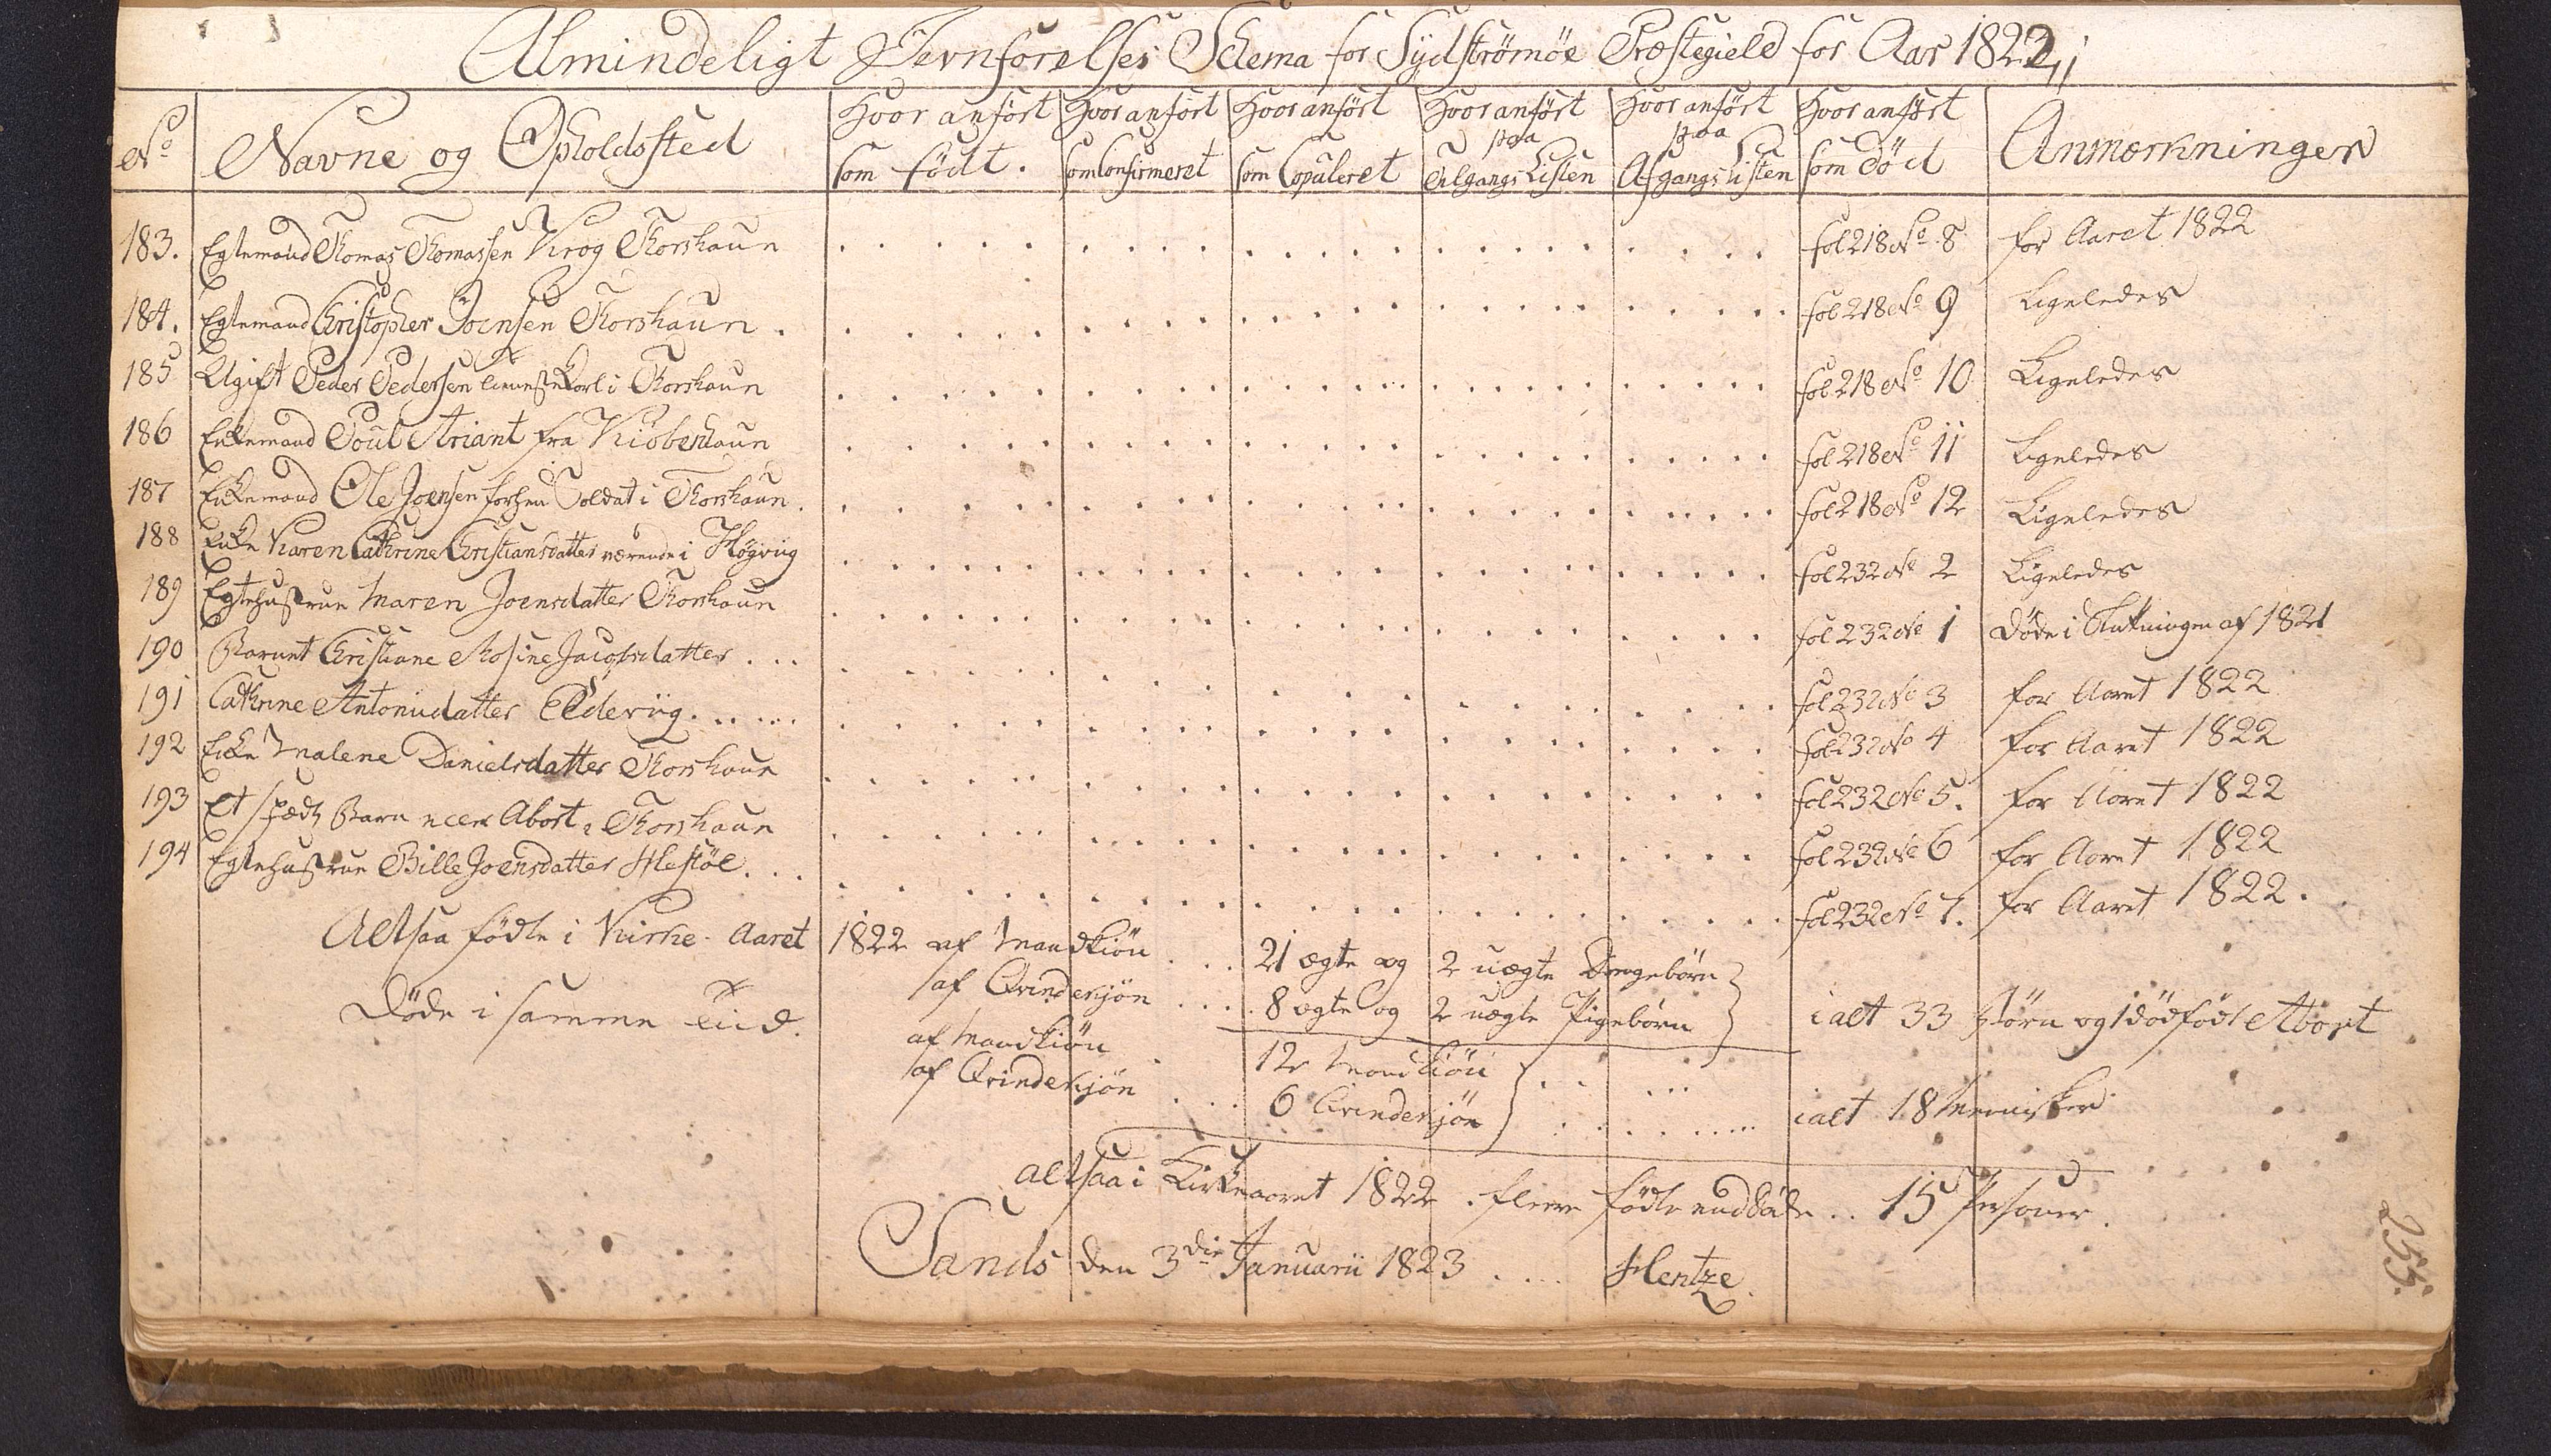 Almindeligt Jevnførelses Schema for Sydstrømøe Præstegield for Aar 1822
No Navne og Opholdssted Hvor anført som født. Hvor anført som Confirmeret Hvor anført som Copuleret Hvor anført paa Tilgangs Listen Hvor anført paa Afgangs Listen Hvor anført som Död Anmærkninger
183. Egtemand Thomas Thomassen Krog Thorshaun fol 218 No 8 for Aaret 1822
184. Egtemand Christopher Joensen Thorshaun . fol 218 No 9 Ligeledes
185 Ugift Peder Pedersen i Thorshaun fol 218 No 10 Ligeledes
186 Enkemand Poul Ariant fra Kiöbenhaun fol 218 No 11 Ligeledes
187 Enkemand Ole Joensen forhen Soldat i Thorshaun. fol 218 No 12 Ligeledes
188 Enke Karen Cathrine Christiansdatter værende i Högviig fol 232 No 2 Ligeledes
189 Egtehustrue Maren Joensdatter Thorshaun fol 232 No 1 döde i Slutningen af 1821
190 Barnet Christiane Rosine Jacobsdatter . . . fol 232 No 3 for Aaret 1822
191 Cathrine Antoniidatter Elderiig . . . . . fol 232 No 4 for Aaret 1822
192 Enke Malene Danielsdatter Thorshaun fol 232 No 5. for Aaret 1822
193 Et spædt Barn Abort i Thorshaun fol 232 No 6 for Aaret 1822
194 Egtehustrue Bille Joensdatter Hestöe. . . fol 232 No 7. for Aaret 1822.
Altsaa födte i Kirke-Aaret 1822 af Mandkiön . . . 21 ægte og 2 uægte Drengebörn
af Qvindekjön . . . 8 ægte og 2 uægte Pigebörn ialt 33 Börn og 1 dödfödt Abort
Döde i samme Tiid. af Mandkiön . 12 Mandkiön
af Qvindekjön . . . 6 Qvindekjön ialt 18 Mennisker
altsaa i Kirkeaaret 1822 . fleere födte end döde . . 15 Personer.
Sands den 3die Januarii 1823 . . . . Hentze.
255.